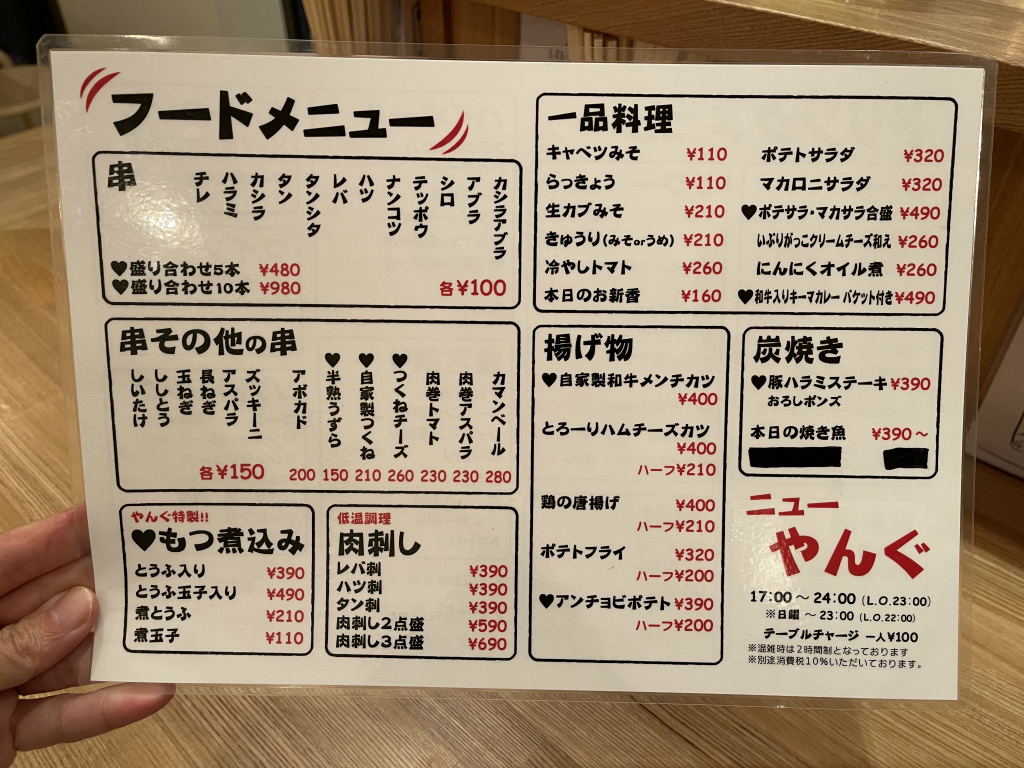 フードメニュー
串
チレ
ハラミ
カシラ
タン
タンシタ
レバ
ハツ
ナンコツ
テッポウ
シロ
アブラ
カシラアブラ
♥盛り合わせ5本 ¥480
♥盛り合わせ10本 ¥980
各¥100
串その他の串
しいたけ
ししとう
玉ねぎ
長ねぎ
アスパラ
ズッキーニ
各¥150
アボカド 200
♥半熟うずら 150
♥自家製つくね 210
♥つくねチーズ 260
肉巻トマト 230
肉巻アスパラ 230
カマンベール 280
やんぐ特製!!
♥もつ煮込み
とうふ入り ¥390
とうふ玉子入り ¥490
煮とうふ ¥210
煮玉子 ¥110
低温調理
肉刺し
レバ刺 ¥390
ハツ刺 ¥390
タン刺 ¥390
肉刺し2点盛 ¥590
肉刺し3点盛 ¥690
一品料理
キャベツみそ ¥110
らっきょう ¥110
生カブみそ ¥210
きゅうり(みそorうめ) ¥210
冷やしトマト ¥260
本日のお新香 ¥160
ポテトサラダ ¥320
マカロニサラダ ¥320
♥ポテサラ・マカサラ合盛 ¥490
いぶりがっこクリームチーズ和え ¥260
にんにくオイル煮 ¥260
♥和牛入りキーマカレー バケット付き ¥490
揚げ物
♥自家製和牛メンチカツ
¥400
とろーりハムチーズカツ
¥400
ハーフ¥210
鶏の唐揚げ ¥400
ハーフ¥210
ポテトフライ ¥320
ハーフ¥200
♥アンチョビポテト ¥390
ハーフ¥200
炭焼き
♥豚ハラミステーキ ¥390
おろしポンズ
本日の焼き魚 ¥390～
ニュー
やんぐ
17:00～24:00 (L.O.23:00)
※日曜 ～23:00 (L.O.22:00)
テーブルチャージ 一人¥100
※混雑時は2時間制となっております
※別途消費税10%いただいております。